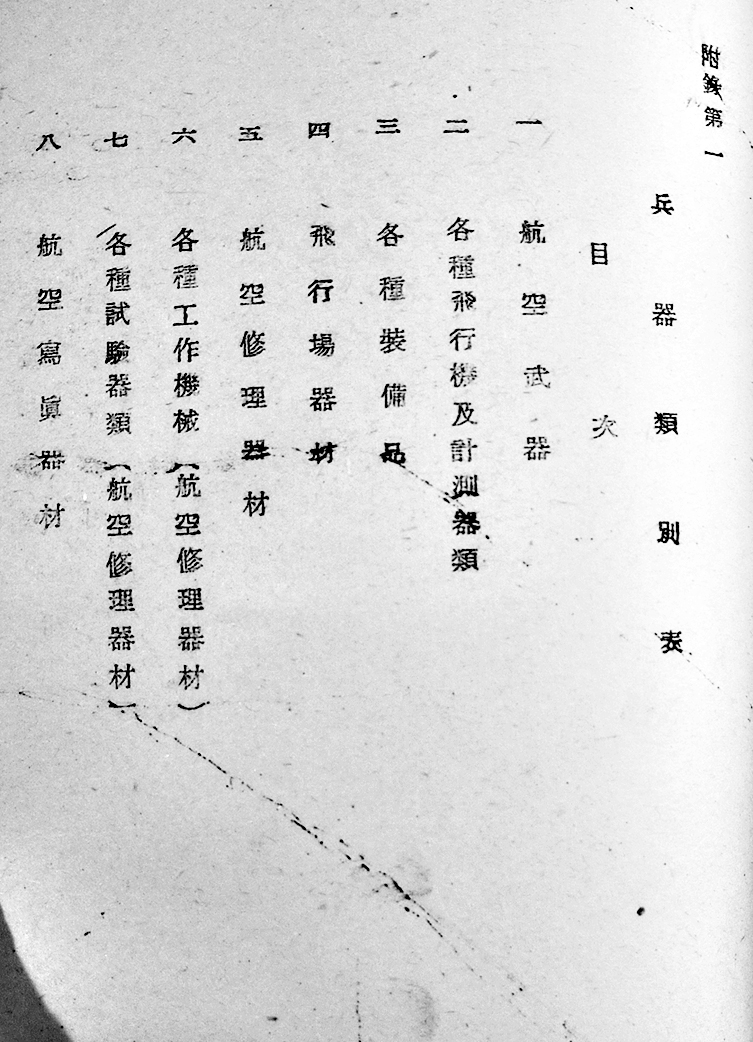 附錄第一
兵器類別表
目次
一 航空武器
二 各種飛行機及計測器類
三 各種裝備品
四 飛行場器材
五 航空修理器材
六 各種工作機械(航空修理器材)
七 各種試驗器類(航空修理器材)
八 航空寫眞器材